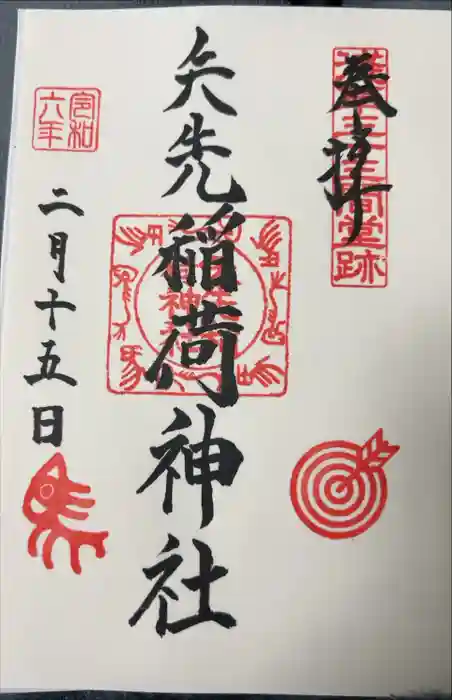 奉拝
三十三間堂跡
矢先稲荷神社
令和
六年
二月十五日
馬